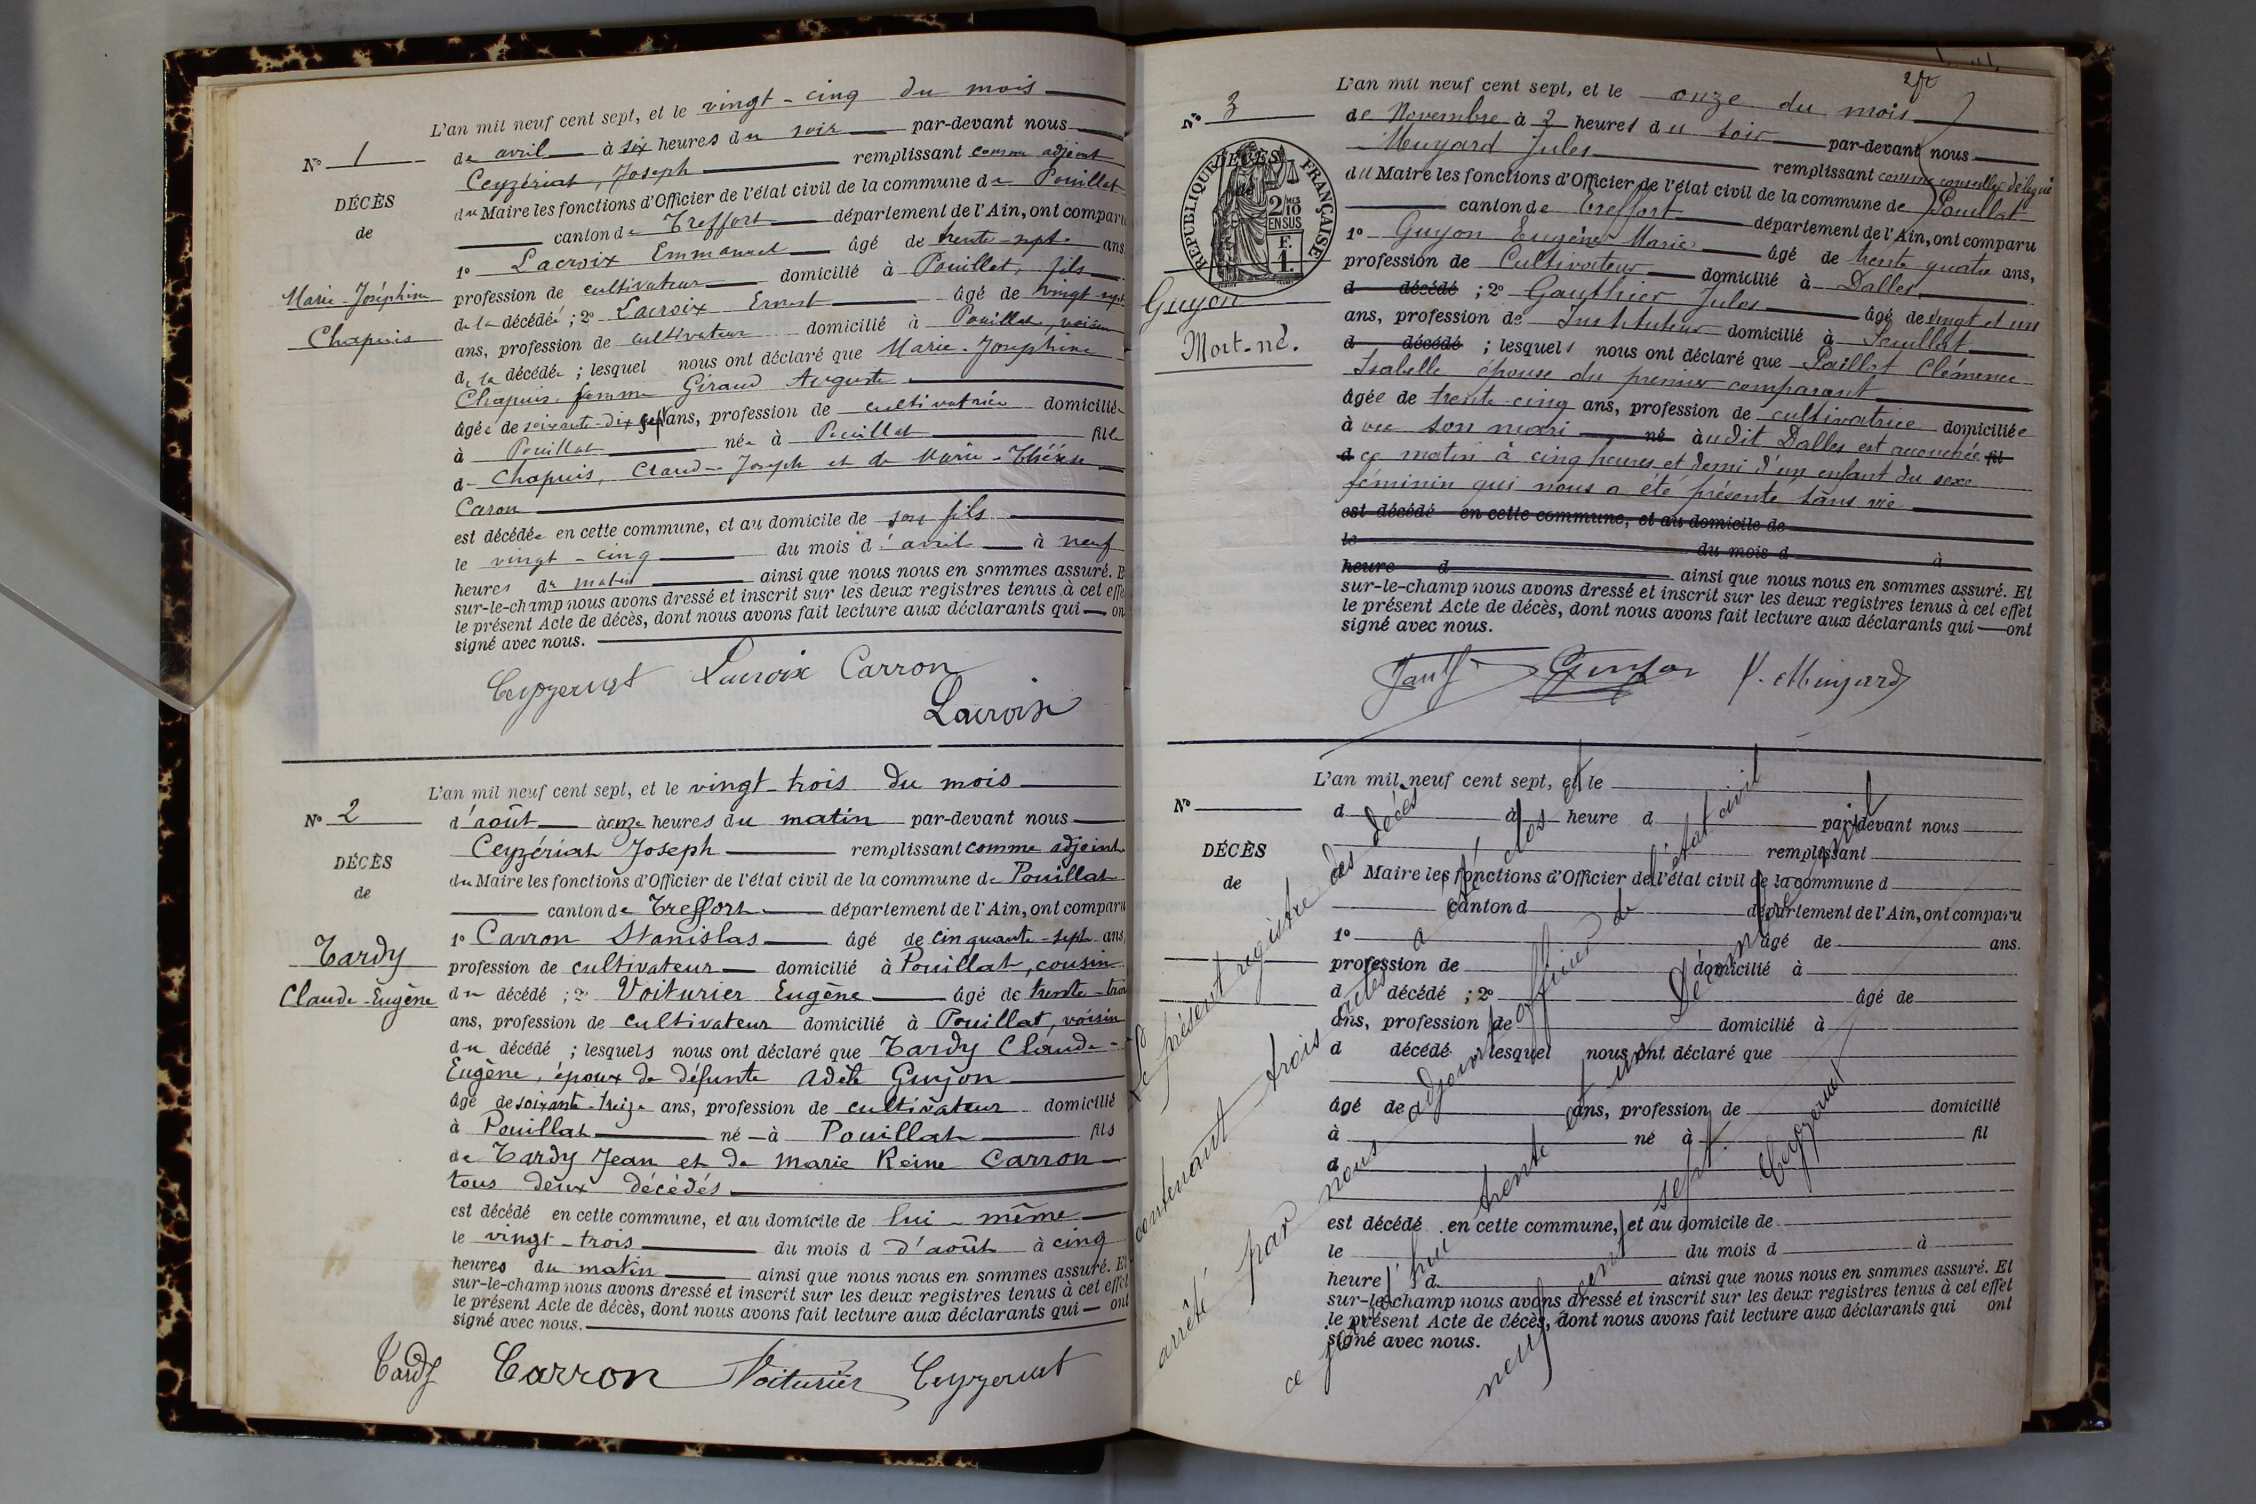 L'an mil neuf cent sept, et le vingt-cinq du mois
N° 1
de avril à six heures du soir par-devant nous
Ceyzériat, Joseph remplissant comme adjoint
DÉCÈS
du Maire les fonctions d'Officier de l'état civil de la commune de Pouillat
de
canton de Treffort département de l'Ain, ont comparu
1° Lacroix Emmanuel âgé de trente-sept ans
Marie-Joséphine
profession de cultivateur domicilié à Pouillat, fils
Chapuis
de la décédée ; 2° Lacroix Ernest âgé de vingt-sept
ans, profession de cultivateur domicilié à Pouillat, voisin
de la décédée ; lesquel nous ont déclaré que Marie-Joséphine
Chapuis femme Giraud Auguste
âgée de soixante-dix sept ans, profession de cultivatrice domiciliée
à Pouillat née à Pouillat fille
de Chapuis, Claude-Joseph et de Marie-Thérèse
Caron
est décédée en cette commune, et au domicile de son fils
le vingt-cinq du mois d'avril à neuf
heures du matin ainsi que nous nous en sommes assuré. E
sur-le-champ nous avons dressé et inscrit sur les deux registres tenus à cet effe
le présent Acte de décès, dont nous avons fait lecture aux déclarants qui on
signé avec nous.
Ceyzeriat Lacroix Carron
Lacroix
L'an mil neuf cent sept, et le vingt-trois du mois
N° 2
d'août à onze heures du matin par-devant nous
Ceyzériat Joseph remplissant comme adjoint
DÉCÈS
du Maire les fonctions d'Officier de l'état civil de la commune de Pouillat
de
canton de Treffort département de l'Ain, ont comparu
1° Carron Stanislas âgé de cinquante-sept ans
Tardy
profession de cultivateur domicilié à Pouillat, cousin
Claude-Eugène
du décédé ; 2° Voiturier Eugène âgé de trente-trois
ans, profession de cultivateur domicilié à Pouillat, voisin
du décédé ; lesquels nous ont déclaré que Tardy Claude-
Eugène, époux de défunte Adèle Guyon
âgé de soixante-treize ans, profession de cultivateur domicilié
à Pouillat né à Pouillat fils
de Tardy Jean et de Marie Reine Carron
tous deux décédés
est décédé en cette commune, et au domicile de lui-même
le vingt-trois du mois d d'août à cinq
heures du matin ainsi que nous nous en sommes assuré. Et
sur-le-champ nous avons dressé et inscrit sur les deux registres tenus à cet effet
le présent Acte de décès, dont nous avons fait lecture aux déclarants qui ont
signé avec nous.
Tardy Carron Voiturier Ceyzeriat
L'an mil neuf cent sept, et le onze du mois
N° 3
de Novembre à 2 heures du soir par-devant nous
Muyard Jules remplissant comme conseiller délégué
du Maire les fonctions d'Officier de l'état civil de la commune de Pouillat
canton de Treffort département de l'Ain, ont comparu
DÉCÈS
de
RÉPUBLIQUE FRANÇAISE
2/10 EN SUS
F.
1.
1° Guyon Eugène Marie âgé de trente quatre ans,
profession de Cultivateur domicilié à Dalles
Guyon
d décédé ; 2° Gauthier Jules âgé de vingt et un
ans, profession de Instituteur domicilié à Pouillat
Mort-né.
d décédé ; lesquels nous ont déclaré que Paillot Clémence
Isabelle épouse du premier comparant
âgée de trente-cinq ans, profession de cultivatrice domiciliée
à avec son mari né audit Dalles est accouchée fil
d ce matin à cinq heures et demi d'un enfant du sexe
féminin qui nous a été présenté sans vie
est décédé en cette commune, et au domicile de
le du mois d à
heure d ainsi que nous nous en sommes assuré. Et
sur-le-champ nous avons dressé et inscrit sur les deux registres tenus à cet effet
le présent Acte de décès, dont nous avons fait lecture aux déclarants qui ont
signé avec nous.
Guyon J. Muyard
L'an mil neuf cent sept, et le
N°
d à heure d par-devant nous
remplissant
DÉCÈS
d Maire les fonctions d'Officier de l'état civil de la commune d
de
canton d département de l'Ain, ont comparu
1° âgé de ans.
profession de domicilié à
d décédé ; 2° âgé de
ans, profession de domicilié à
d décédé ; lesquel nous ont déclaré que
âgé de ans, profession de domicilié
à né à fil
d
est décédé en cette commune, et au domicile de
le du mois d à
heure d ainsi que nous nous en sommes assuré. Et
sur-le-champ nous avons dressé et inscrit sur les deux registres tenus à cet effet
le présent Acte de décès, dont nous avons fait lecture aux déclarants qui ont
signé avec nous.
Le présent registre des décès
contenant trois actes a été clos et
arrêté par nous adjoint officier de l'état civil
ce jourd'hui trente et un Décembre mil
neuf cent sept.
Ceyzeriat